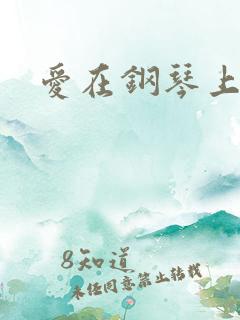 愛在鋼琴上
8知道
未經同意禁止轉載